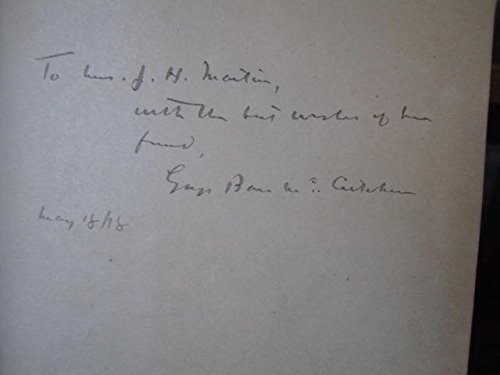 To Mrs. J. H. Martin,
with the best wishes of her
friend,
George Barr McCutcheon
May 18/18